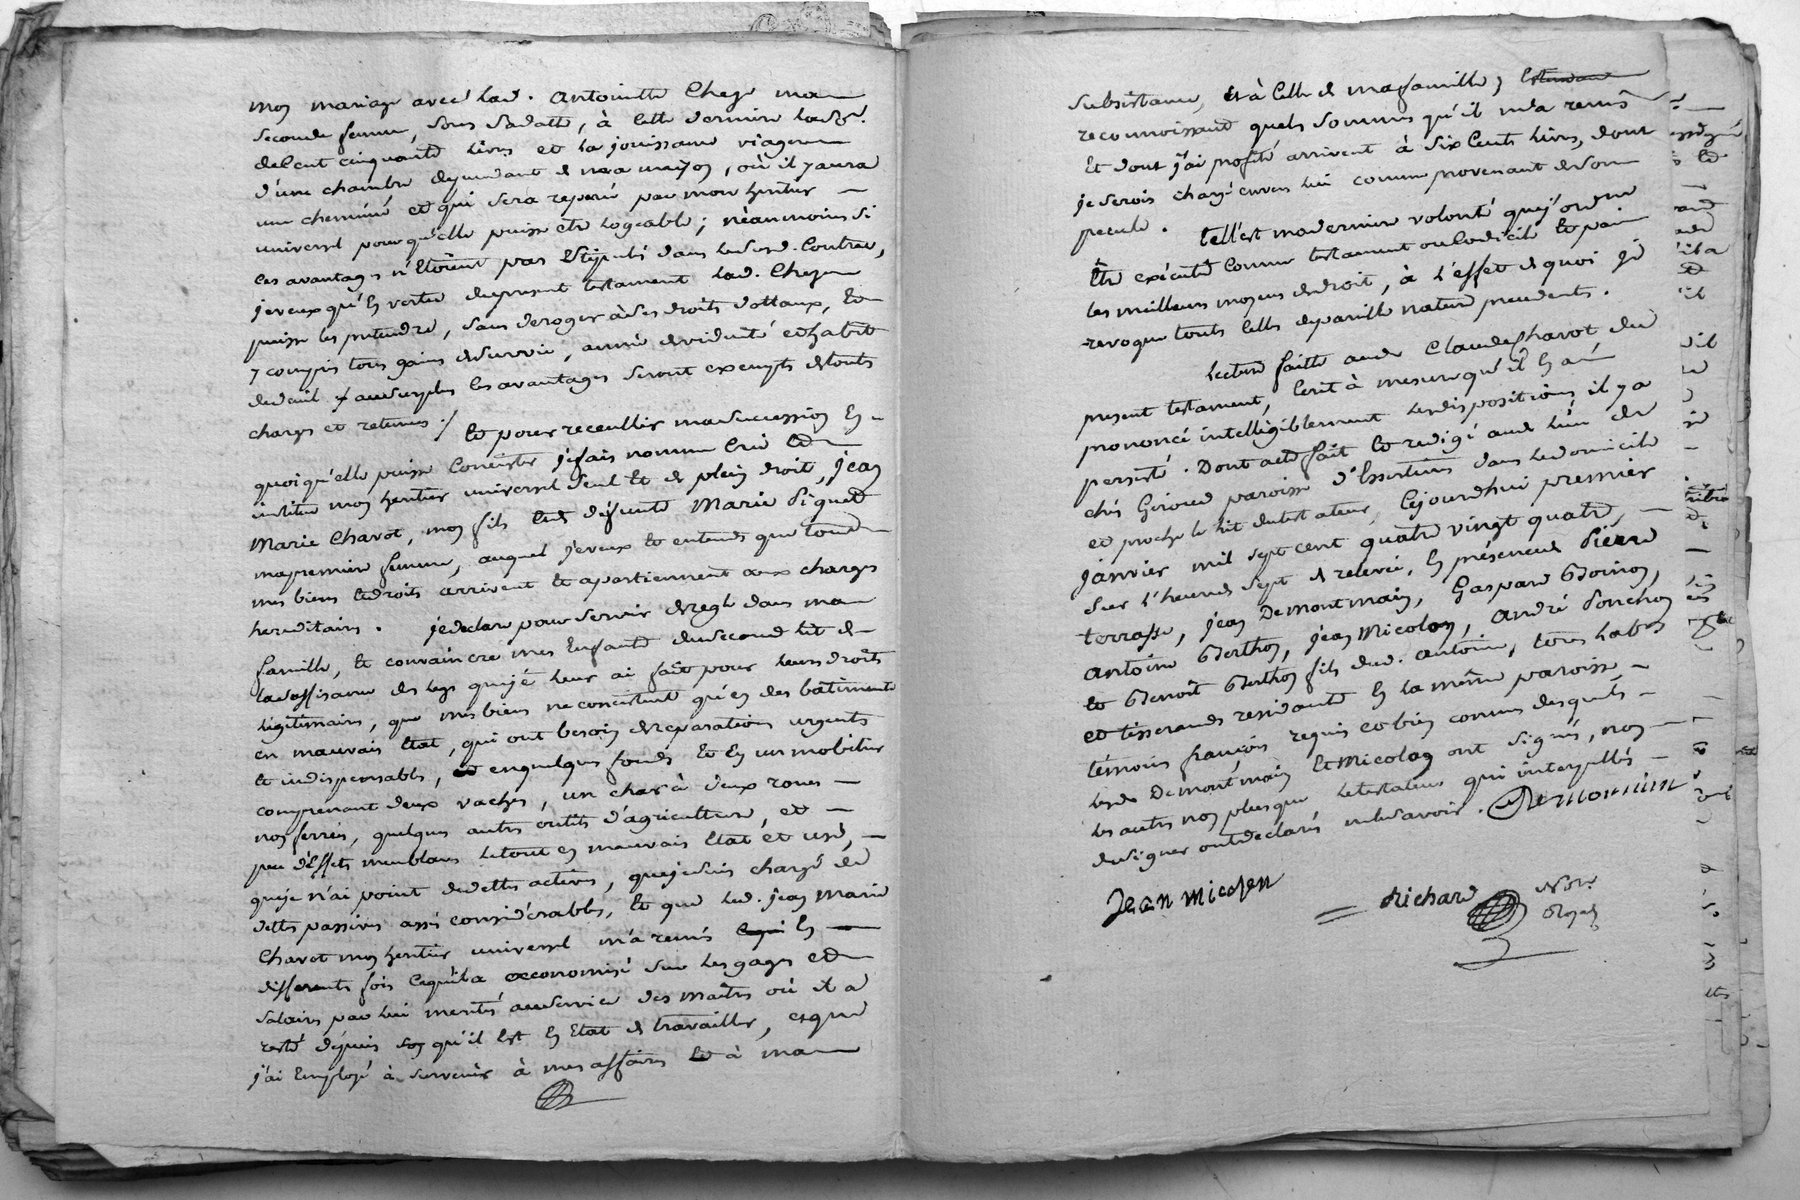 mon mariage avec lad. antoinette Cheze ma
seconde femme, sous sadatte, à cette derniere lad.
de cent cinquante livres et la jouissance viagere
d'une chambre dependant de ma maison, où il y aura
une cheminée et qui sera reparée par mon heritier
universel pour qu'elle puisse etre logeable; néanmoins si
ces avantages n'étoient pas stipulés dans led. Contrat,
je veux qu'en vertu du present testament lad. Cheze
puisse les pretendre, sans deroger à ses droits dottaux, et
y compris tous gains de survie, année de viduité et habit
de deuil au surplus les avantages seront exempts de touts
charges et retenues ./ et pour receuillir ma succession en
quoi qu'elle puisse Concister je fais nomme Crée et
institue mon heritier universel seul et de plein droit, jean
Marie Charot, mon fils et de défunte Marie Piquet
ma premiere femme, auquel je veux et entends que tous
mes biens et droits arrivent et apartiennent aux charges
hereditaires. je declare pour servir de regle dans ma
famille, et convaincre mes Enfants du second lit de
la suffisance des legs que j'é leur ai fait pour leurs droits
légitimaires, que mes biens ne concistent qu'en des bâtiments
en mauvais Etat, qui ont besoin de reparations urgents
et indispensables, en quelques fonds et En un mobilier
comprenant deux vaches, un char à deux roues
non ferrées, quelques autres outils d'agriculture, et
peu d'Effets meublans le tout en mauvais Etat et usé,
que je n'ai point de dettes actives, que je suis chargé de
dettes passives assés considérables, Et que led. jean Marie
Charot mon heritier universel m'a remis en
differents fois ce qu'il a oeconomisé sur les gages et
salaires par lui merités au service des maîtres où il a
resté dépuis qu'il Est En Etat de travailler, et que
j'ai Employé à survenir à mes affaires et à ma
subsistance, et à celle de ma famille;
reconnoissant que les sommes qu'il m'a remis
et dont j'ai profité arrivent à six Cents livres, dont
je serois chargé envers lui comme provenant de son
pecule. tell'est ma derniere volonté que j'ordonne
être exécuté Comme testament ou Codicile et par
les meilleurs moyens de droit, à l'effet de quoi je
revoque touts Celles de pareille nature precedents.
Lecture faitte aud. Claude Charot du
present testament, Ecrit à mesure qu'il En a
prononcé intelligiblement les dispositions il y a
persisté. Dont acte fait et redigé aud. lieu de
chés Giroud paroisse d'Essertines dans le domicile
et proche le lit du testateur, Cejourdhui premier
janvier mil sept cent quatre vingt quatre,
sur l'heure de sept de relevée, En présence de Pierre
terrasse, jean Demontmain, Gaspard Goinon,
antoine Berthon, jean Micolon, André Ponchon
et Benoît Berthon fils dud. antoine, tous
et tisserands residants En la même paroisse
témoins françois requis et bien connus desquels
lesd. Demontmain et Micolon ont signés, non
les autres non plus que le testateur qui interpellés
de signer ont declarés ne le savoir. Demonmin
Jean micolon
Richard Not.re
Royal